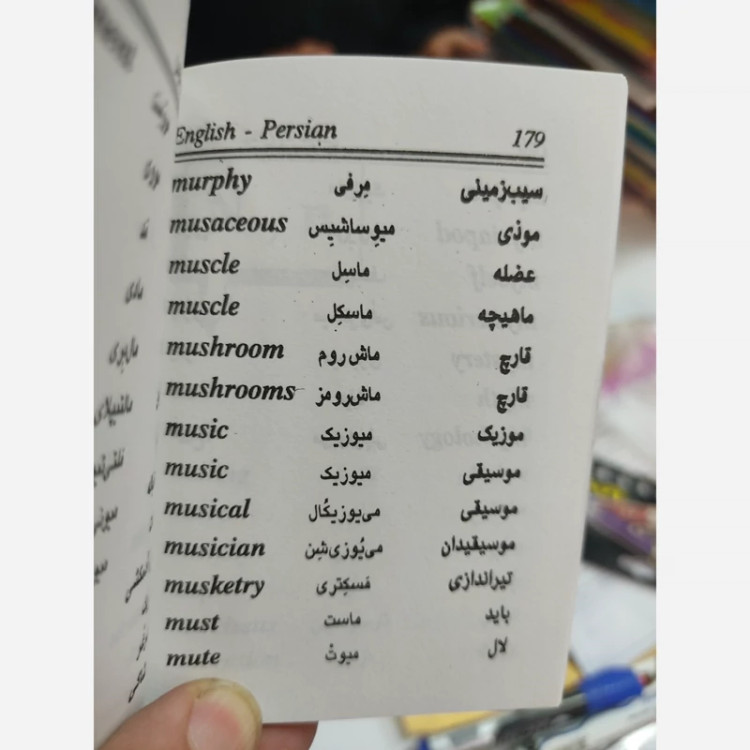 English - Persian 179
murphy مِرفی سیب‌زمینی
musaceous میوِساشیِس موذی
muscle ماسِل عضله
muscle ماسکِل ماهیچه
mushroom ماش‌روم قارچ
mushrooms ماش‌رومز قارچ
music میوزیک موزیک
music میوزیک موسیقی
musical می‌یوزیکُال موسیقی
musician می‌یُوزی‌شِن موسیقیدان
musketry مَسکِتری تیراندازی
must ماست باید
mute میوتْ لال